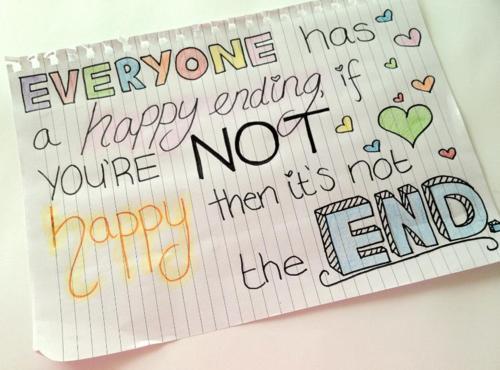 EVERYONE has
a happy ending, if
YOU'RE NOT
happy then it's not
the END.